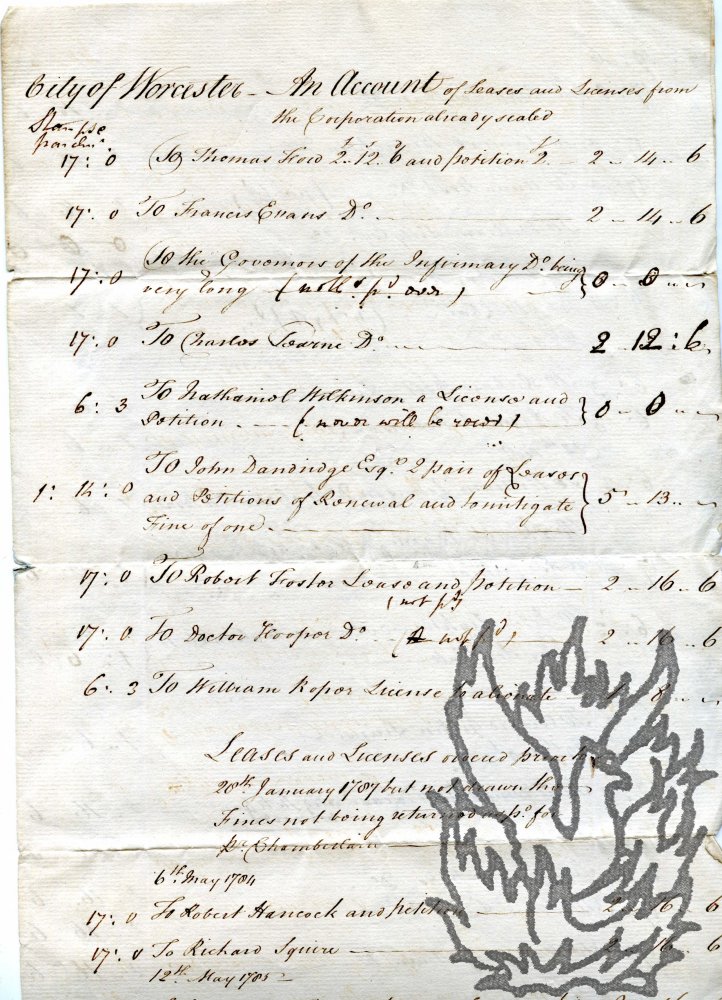 City of Worcester - An Account of Leases and Licenses from
the Corporation already sealed
Stamps &
parchm.t
17: 0 To Thomas 2. 12. 6 and petition 2. - 2 .. 14 .. 6
17: 0 To Francis Evans Do. 2 .. 14 .. 6
17: 0 To the Governors of the Infirmary Do. being
very long ( pd. over ) 0 .. 0 .. ..
17: 0 To Charles Do. 2 12 : 6
6: 3 To Nathaniel Wilkinson a License and
Petition. - ( never will be ) 0 .. 0 .. ..
To John Dandridge Esqr. 2 pair of Leases
1: 14: 0 and Petitions of Renewal and to mitigate 5 .. 13 .. ..
Fine of one. -
17: 0 To Robert Foster Lease and petition - 2 .. 16 .. 6
( not pd )
17: 0 To Doctor Hooper Do. ( not pd ) 2 .. 16 .. 6
6: 3 To William Roper License to alienate 1 8 .. ..
LEASES and Licenses ordered
28th January 1787 but not drawn the
Fines not being returned for
pr. Chamberlain
6th. May 1784
17: 0 To Robert Hancock and petition - 2 .. 16 .. 6
17: 0 To Richard Squire - 2 .. 16 .. 6
12th. May 1785 -